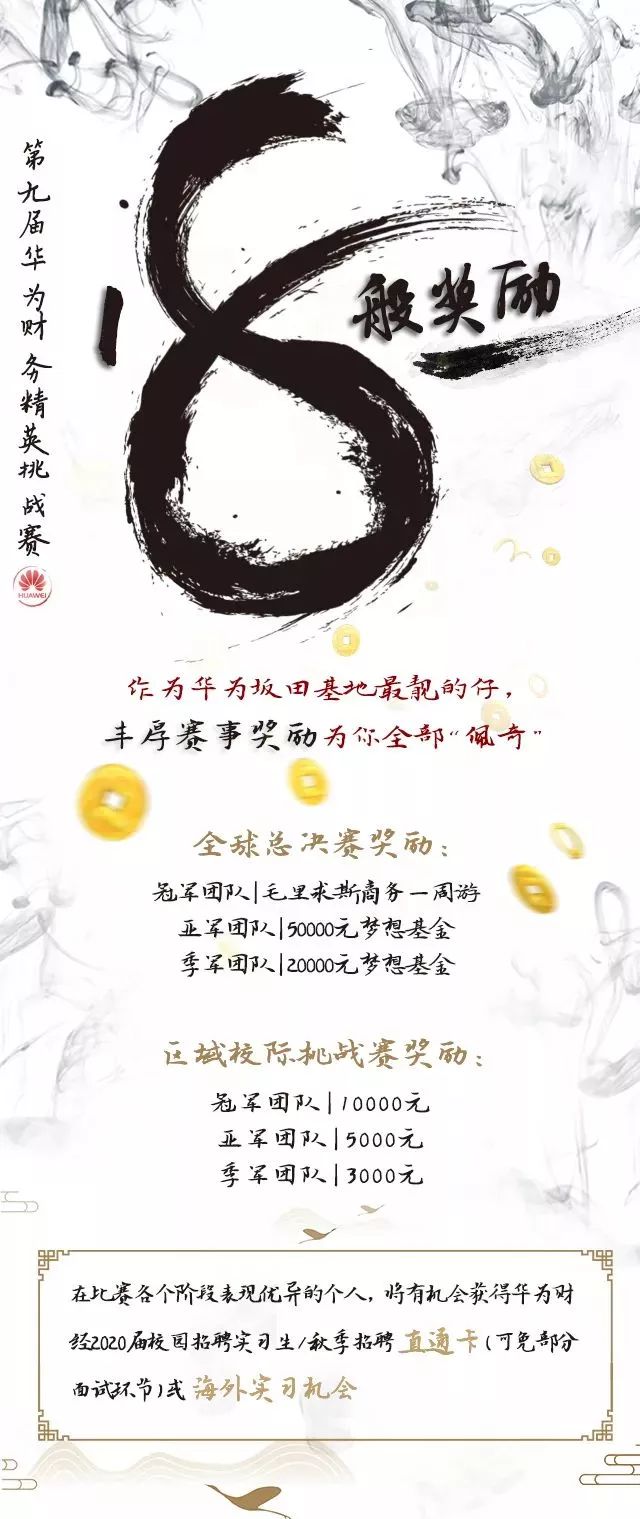 第九届华为财务精英挑战赛
HUAWEI
18
般奖励
作为华为坂田基地最靓的仔，
丰厚赛事奖励为你全部“佩奇”
全球总决赛奖励：
冠军团队|毛里求斯商务一周游
亚军团队|50000元梦想基金
季军团队|20000元梦想基金
区域校际挑战赛奖励：
冠军团队|10000元
亚军团队|5000元
季军团队|3000元
在比赛各个阶段表现优异的个人，将有机会获得华为财
经2020届校园招聘实习生/秋季招聘 直通卡（可免部分
面试环节）或 海外实习机会